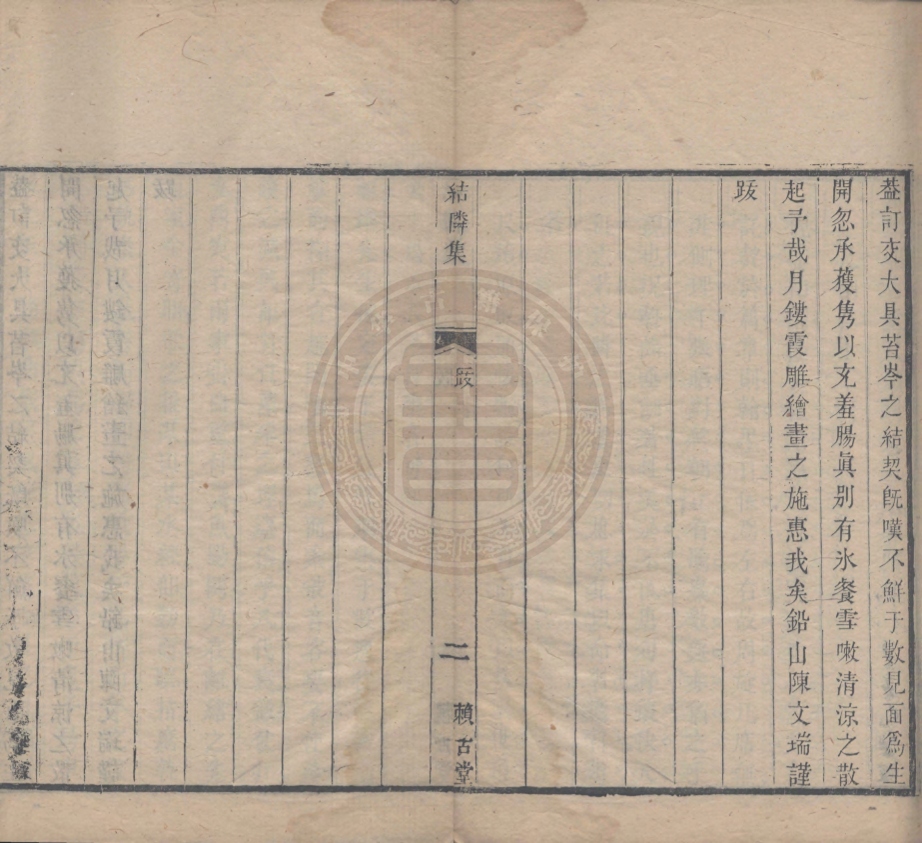 葢訂交大具苔岑之結契旣嘆不鮮于數見面爲生
開忽承獲雋以充羞腸眞别有氷餐雪嗽清涼之散
起予哉月鏤霞雕繪畫之施惠我矣鉛山陳文瑞謹
跋
結隣集
跋
二
賴古堂